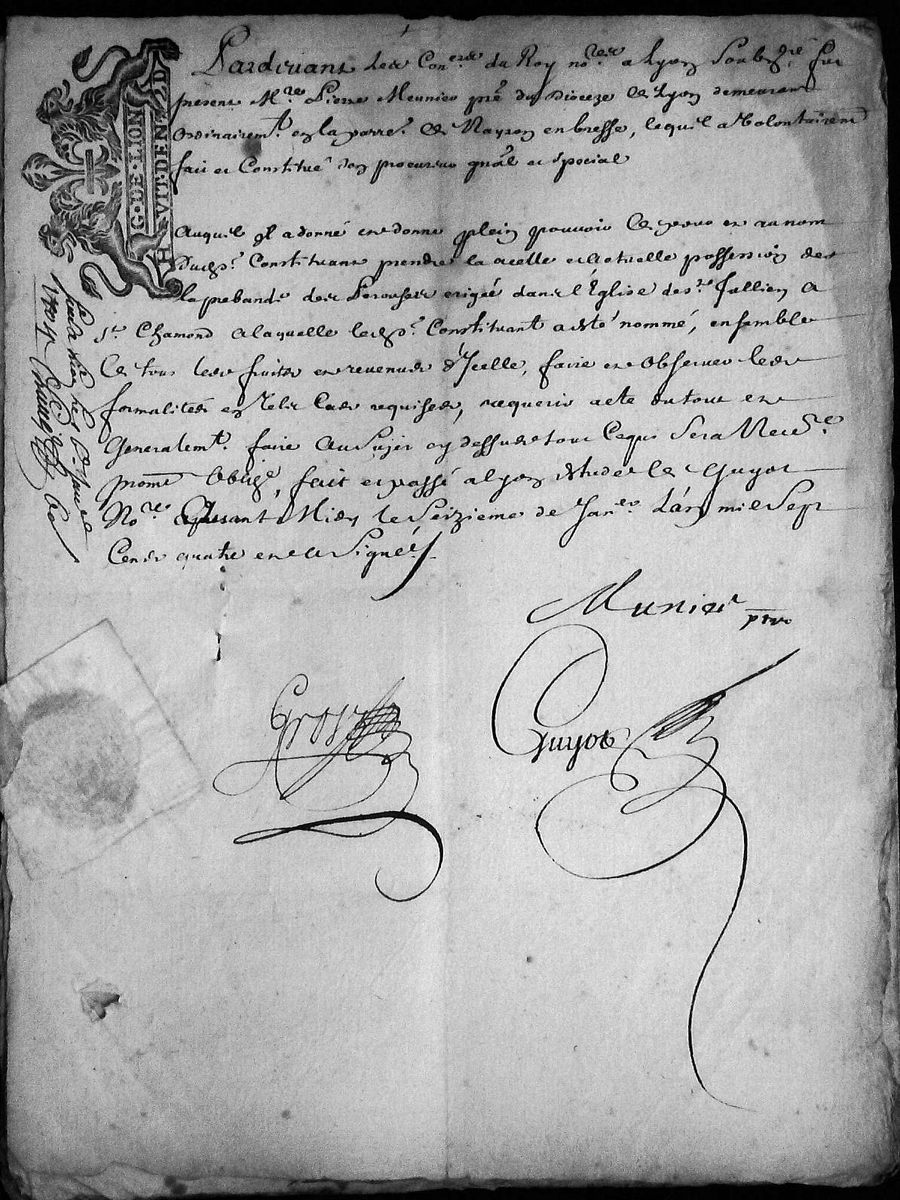 G·DE·LION
HVIT·DEN·D
Pardevant les Con.ers du Roy no.res a Lyon soubsig.é fut
present M.re Pierre Meunier p.re du Dioceze de Lyon demeurant
ordinairem.t en la parr.e de en bresse, lequel a volontairem.
fait et Constitué son procureur gnãl et special
auquel Il a donné et donne plein pouvoir de pour et au nom
dud.t Constituant prendre la et actuelle possession de
la prebande des erigée dans l'Eglise de s.t Jullien a
s.t Chamond a laquelle led.t Constituant a esté nommé, ensemble
de tous les fruits et revenus d'Icelle, faire et observer les
formalités en tels cas requises, requerir acte du tout et
generalem.t faire au sujet cy dessus tout ce qui sera necess.re
prom.t oblig.t, fait et passé a Lyon Estude de Guyot
No.re avant Midy le seizieme de Jan.er L'an mil sept
Cents quatre et a signé./.
Munier
p.tre
Gros
Guyot